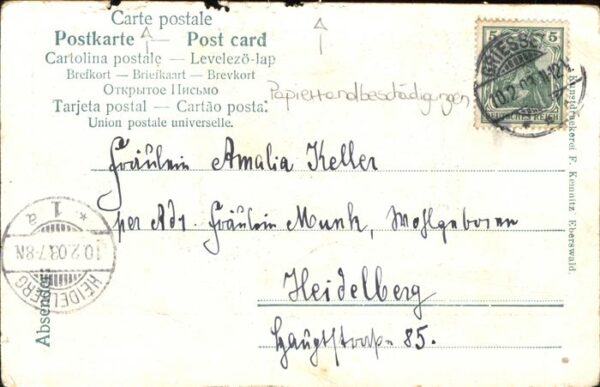 Carte postale
Postkarte — Post card
Cartolina postale — Levelező-lap
Brefkort — Briefkaart — Brevkort
ОТКРЫТОЕ ПИСЬМО
Tarjeta postal — Cartão postal
Union postale universelle.
Papierrandbeschädigungen
5 5
DEUTSCHES REICH
GIESSEN
10.2.03.
Fräulein Amalia Keller
per Adr. Fräulein Munk, Wohlgeboren
Heidelberg
Hauptstraße 85.
HEIDELBERG
* 1 a
10.2.03.7-8N
Absender:
Kunstdruckerei F. Kemnitz Eberswald.